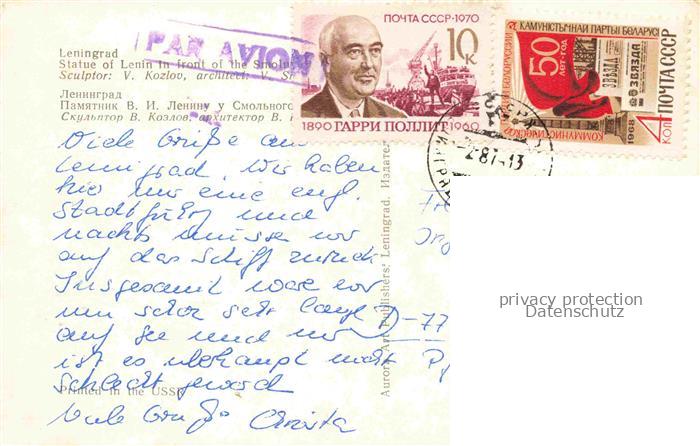 PAR AVION
ПОЧТА СССР·1970
10 К
1890 ГАРРИ ПОЛЛИТ 1960
КАМУНІСТЫЧНАЙ ПАРТЫІ БЕЛАРУСІ
50 ЛЕТ-ГОД
ЗВЕЗДА
ЗВЯЗДА
1968
ПОЧТА СССР
4 КОП
Leningrad
Statue of Lenin in front of the Smolny
Sculptor: V. Kozlov, architect: V.
Ленинград
Памятник В. И. Ленину у Смольного
Скульптор В. Козлов, архитектор В.
Viele Grüße aus
Leningrad. Wir haben
hier nur eine engl.
Stadtführg und
nachts müssen wir
auf das Schiff zurück
Insgesamt waren wir
nun schon sehr lange
auf See und mir
ist es überhaupt nicht
schlecht geword
Viele Grüße Christa
Printed in the USSR
Aurora Art Publishers. Leningrad. Издатель
D-77
privacy protection
Datenschutz